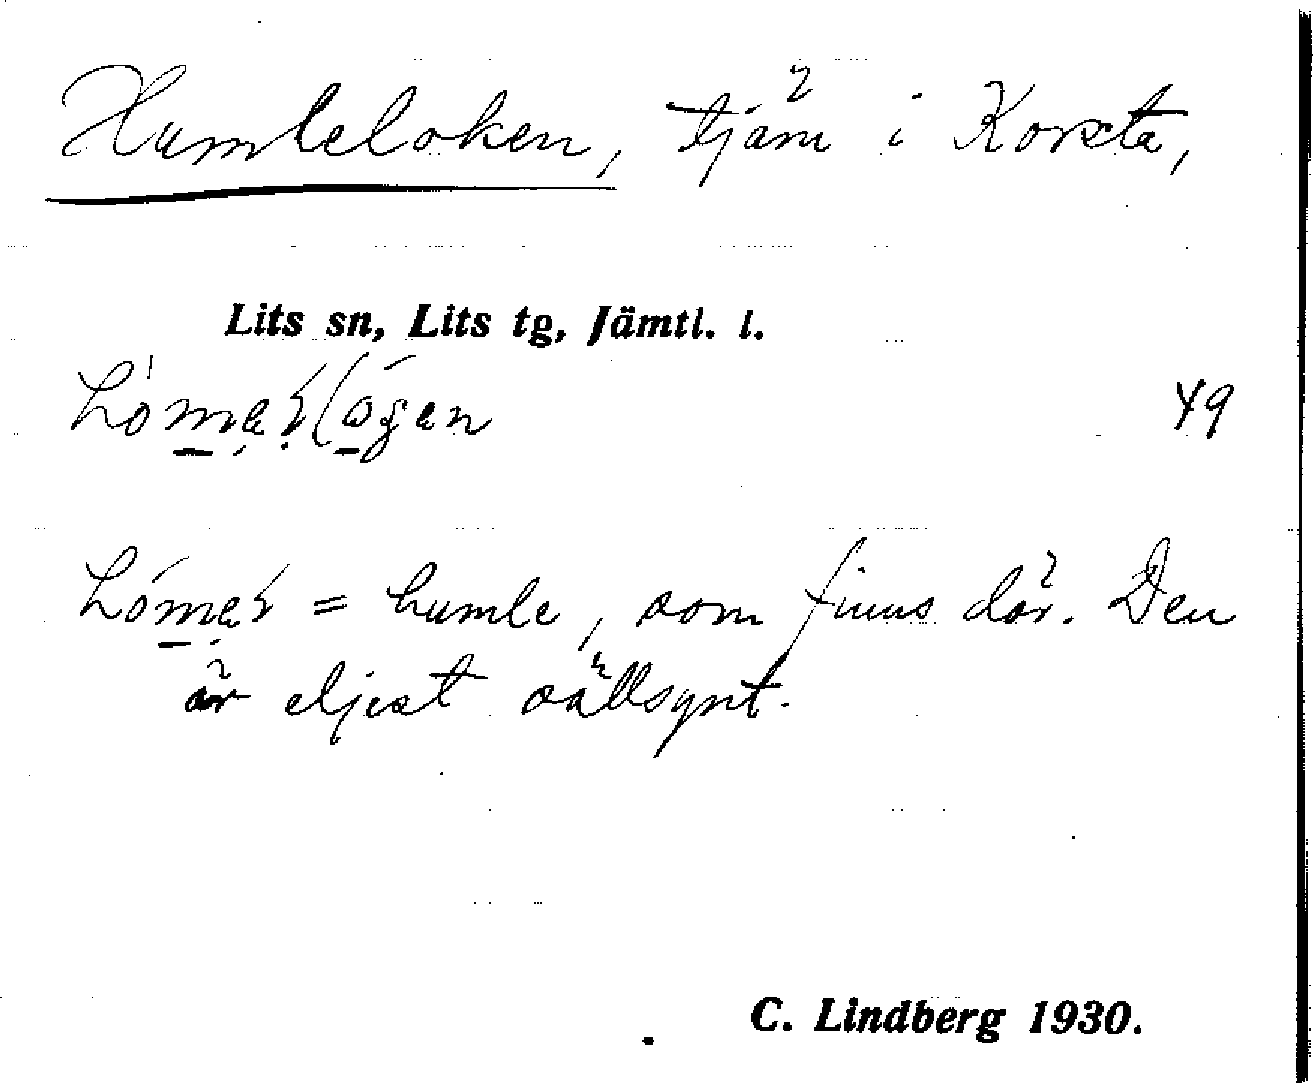 Humleloken, tjärn i Korsta,
Lits sn, Lits tg, Jämtl. l.
49
= humle, som finns där. Den
är eljest sällsynt.
C. Lindberg 1930.